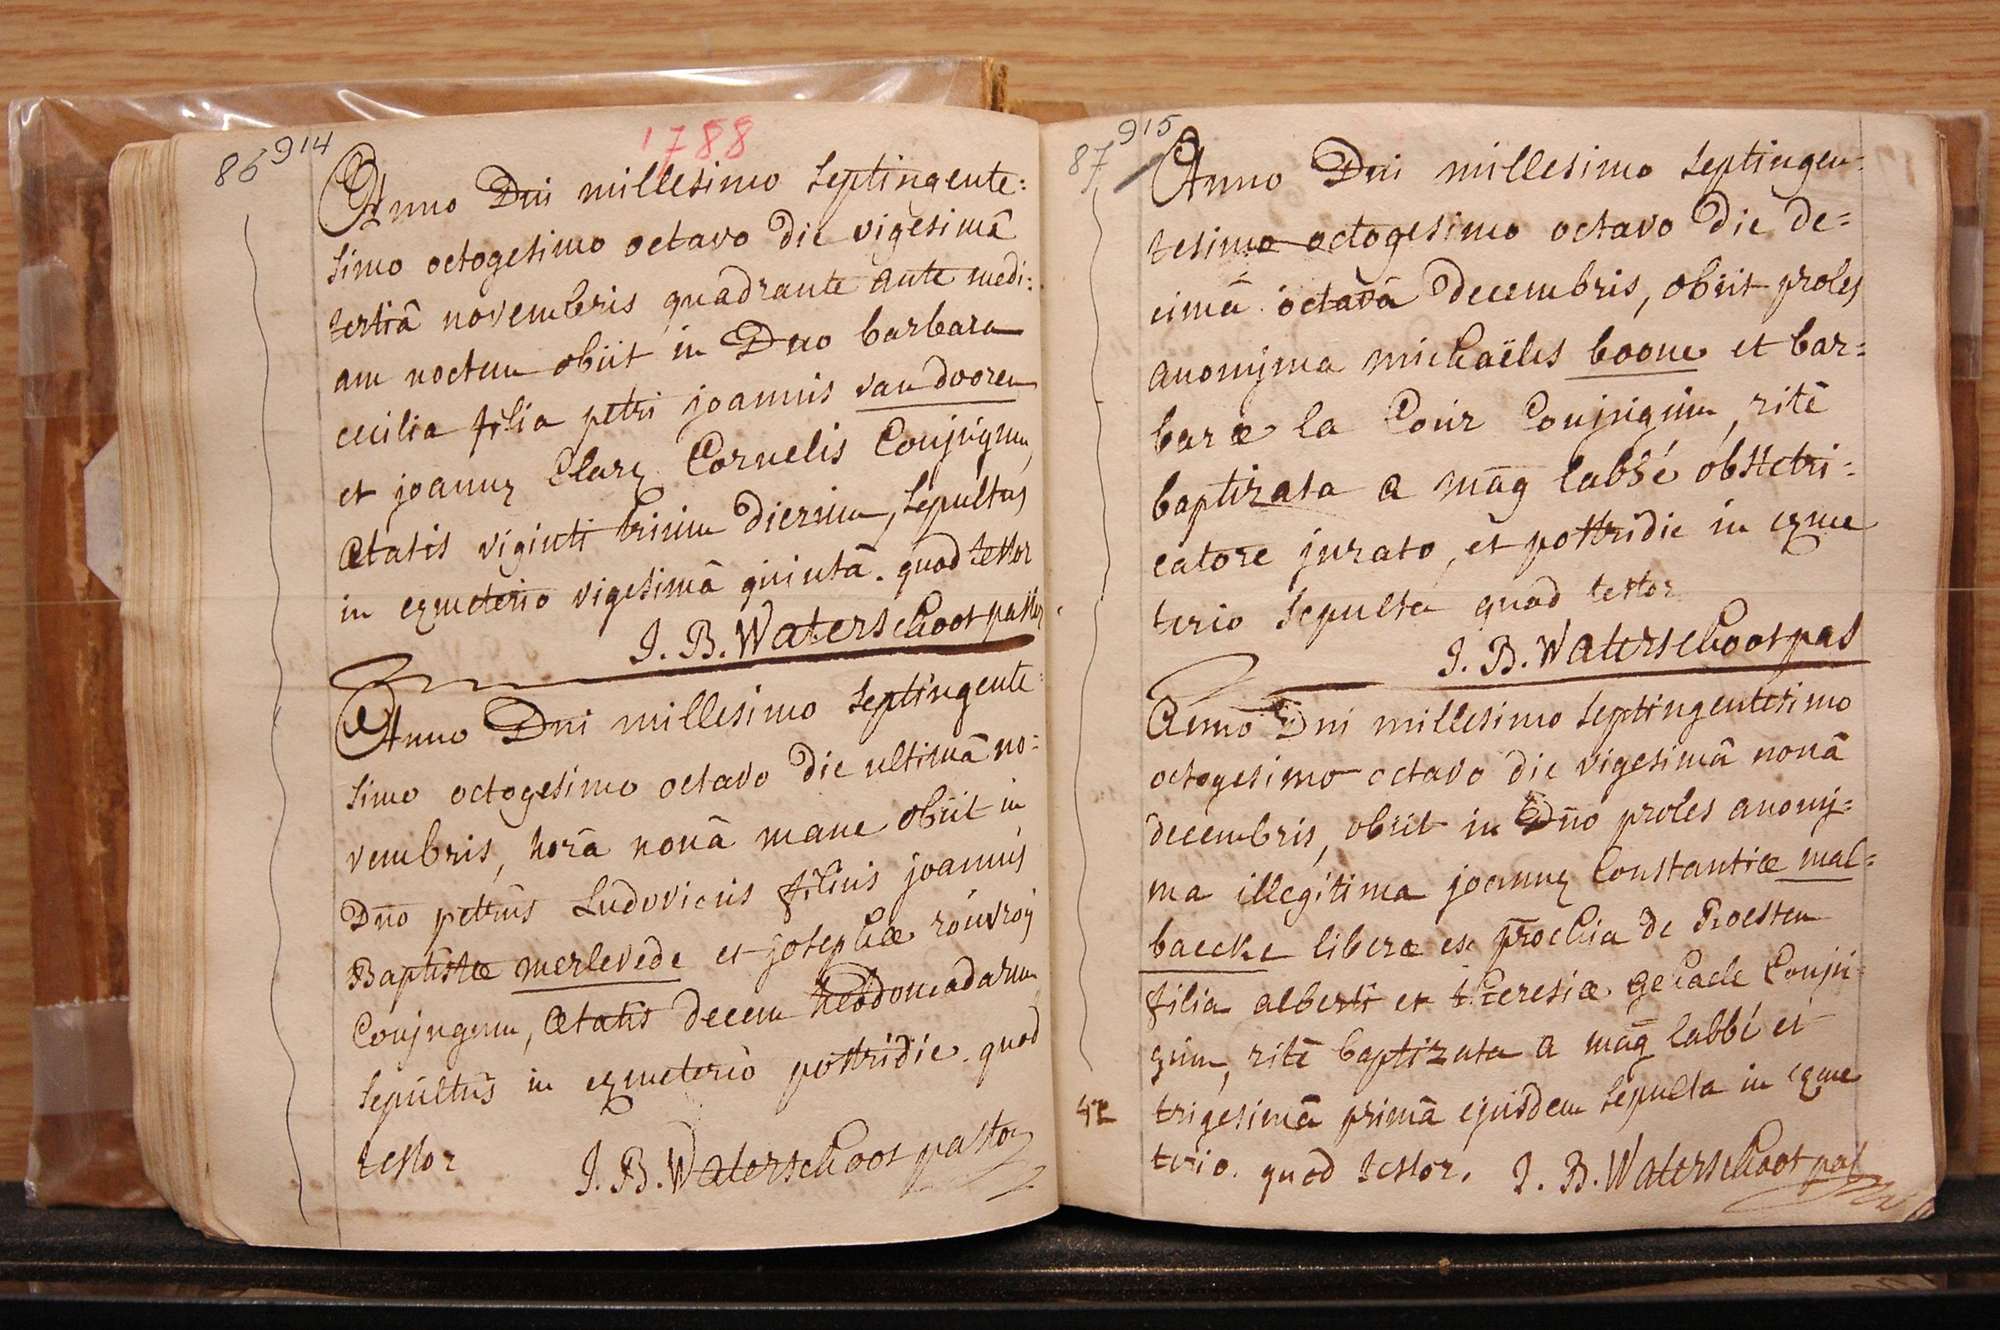 86 914
1788
Anno Dni millesimo septingente:
simo octogesimo octavo die vigesimâ
tertiâ novembris quadrante ante medi:
am noctem obiit in Dno barbara
cecilia filia petri joannis van dooren
et joannę Clarę Cornelis Conjugum,
ætatis viginti trium dierum, sepultus
in cęmeterio vigesimâ quintâ. quod testor
J. B. Waterschoot pastor
Anno Dni millesimo septingente:
simo octogesimo octavo die ultimâ no=
vembris, horâ nonâ mane obiit in
Dno petrus Ludovicus filius joannis
Baptistæ merlevede et josephæ rouvroy
Conjugum, ætatis decem hebdomadarum
sepultus in cęmeterio postridie. quod
testor J. B. Waterschoot pastor
87 915
Anno Dni millesimo septingen=
tesimo octogesimo octavo die de=
cimâ octavâ decembris, obiit proles
anonijma michaëlis boone et bar=
baræ la Cour Conjugum, ritè
baptizata a mag labbé obstetri=
catore jurato, et postridie in cęme
terio sepulta quod testor
J. B. Waterschoot pas
Anno Dni millesimo septingentesimo
octogesimo octavo die vigesimâ nonâ
decembris, obiit in Dno proles anonij=
ma illegitima joannę Constantiæ mal=
baecke liberæ ex prochia de Proesten
filia alberti et theresiæ gehaele Conju=
gum, ritè baptizata a mag labbé et
42 trigesimâ primâ ejusdem sepulta in cęme
terio. quod testor. J. B. Waterschoot past